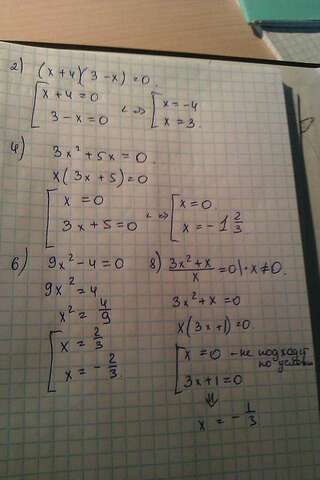 2) (x+4)(3-x)=0.
[x+4=0 <=> [x=-4
[3-x=0 [x=3.
4) 3x²+5x=0.
x(3x+5)=0
[x=0 <=> [x=0.
[3x+5=0 [x=-1 2/3
6) 9x²-4=0
9x²=4
x²=4/9
[x=2/3
[x=-2/3.
8) (3x²+x)/x=0|·x≠0.
3x²+x=0
x(3x+1)=0.
[x=0 - не подходит
по условию
[3x+1=0
⇓
x=-1/3